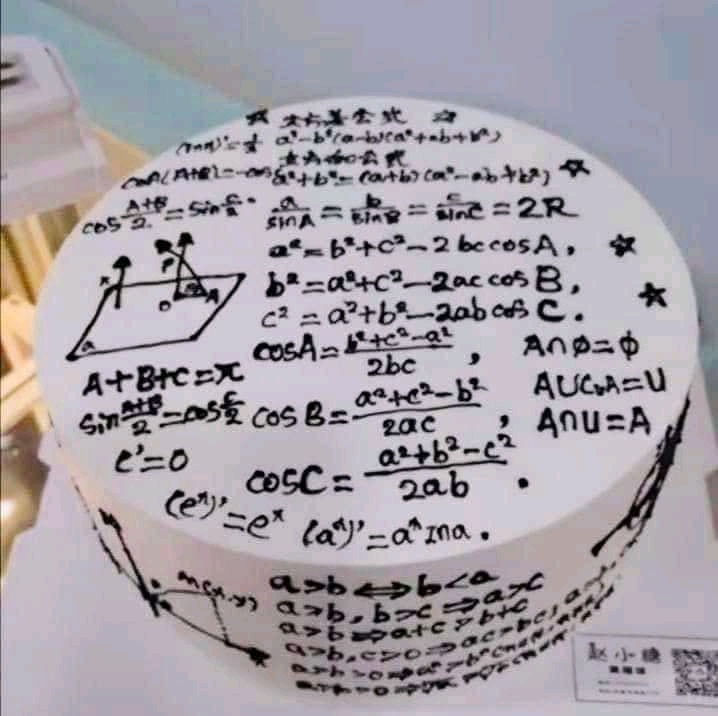 ☆ 公式 ☆
a³-b³(a-b)(a²+ab+b²)
cos(A+B)=-cos
a³+b³=(a+b)(a²-ab+b²) ☆
cos A+B/2 = sin C/2
a/sinA = b/sinB = c/sinC = 2R
a²=b²+c²-2bccosA, ☆
b²=a²+c²-2accosB,
c²=a²+b²-2abcosC. ☆
P
O A
a
A+B+C=π
cosA= b²+c²-a²/2bc ,
A∩Ø=Ø
sin A+B/2 = cos C/2
cosB= a²+c²-b²/2ac ,
A∪CᵤA=U
A∩U=A
c'=0
cosC= a²+b²-c²/2ab .
(eˣ)'=eˣ
(aˣ)'=aˣlna.
M(x,y)
a>b⇔b<a
a>b,b>c⇒a>c
a>b⇒a+c>b+c
a>b,c>0⇒ac>bc,
赵小糖